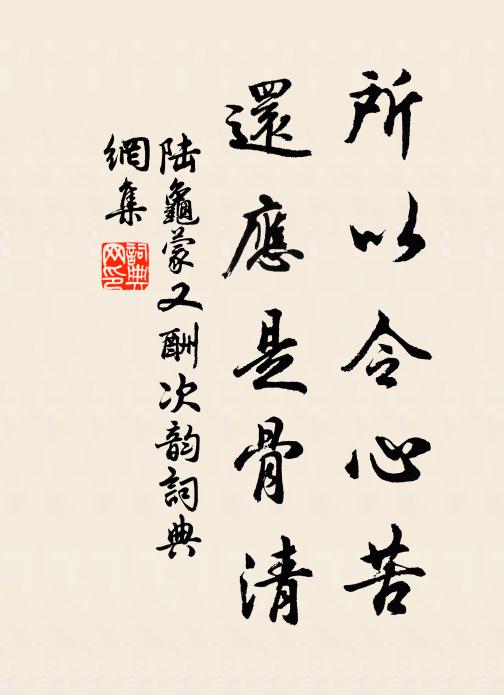 所以令心苦
還應是骨清
陆龜蒙又酬次韵詞典
網集
詞典
网印